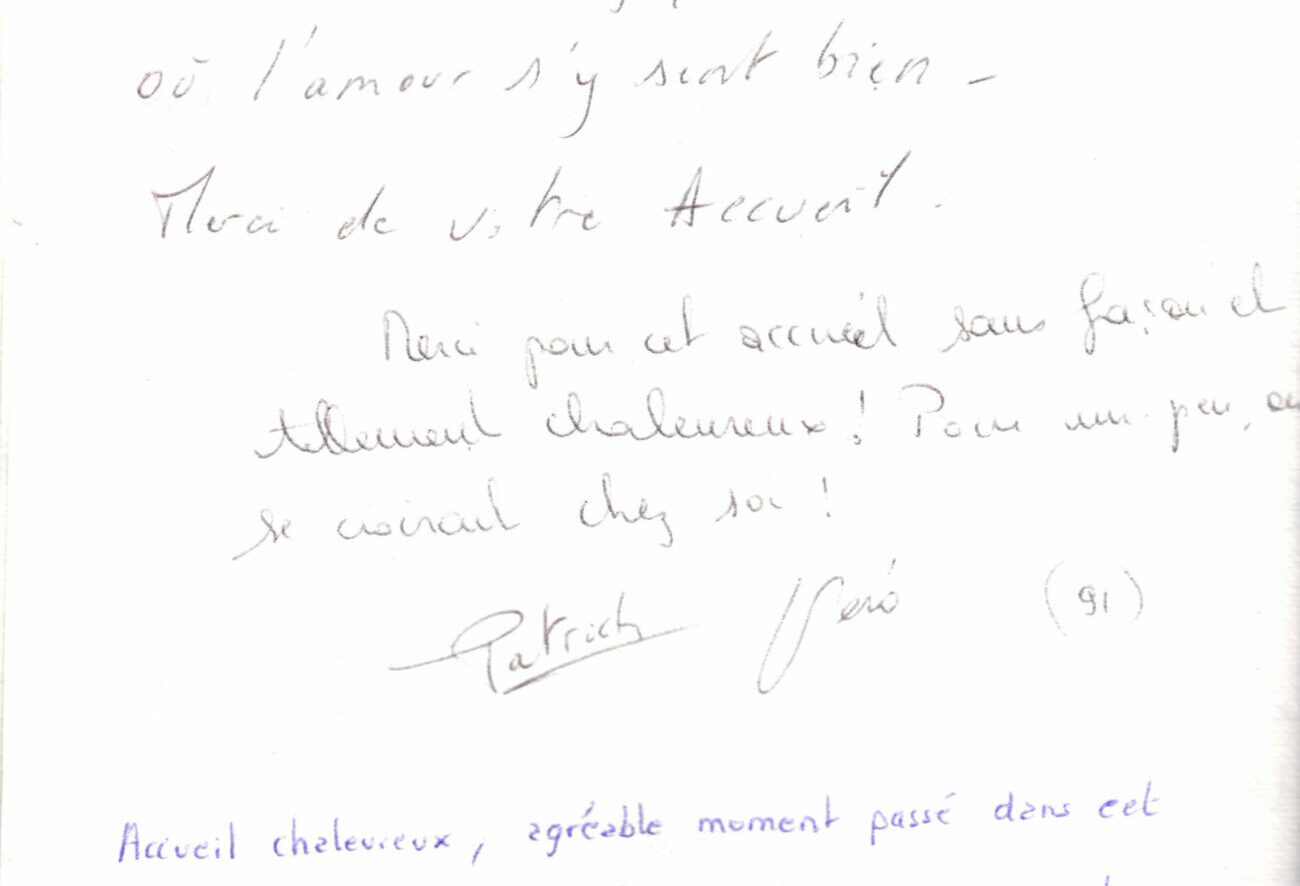 où l'amour s'y sent bien -
Merci de votre Accueil.
Merci pour cet accueil sans façon et
tellement chaleureux ! Pour un peu, on
se croirait chez soi !
Patrick Véro (91)
Accueil chaleureux, agréable moment passé dans cet